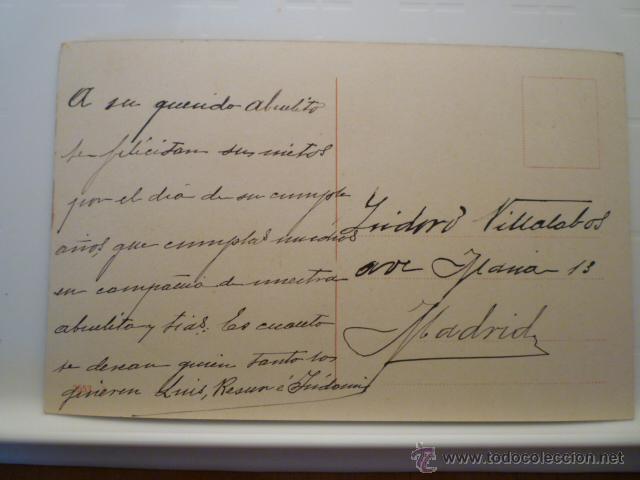 A su querido abuelito
te felicitan sus nietos
por el dia de su cumple
años, que cumplas muchos
en compañia de nuestra
abuelita y tias. Es cuanto
se desean quien tanto los
quieren Luis, é
Isidoro Villalobos
ave Maria 13
Madrid
www.todocoleccion.net